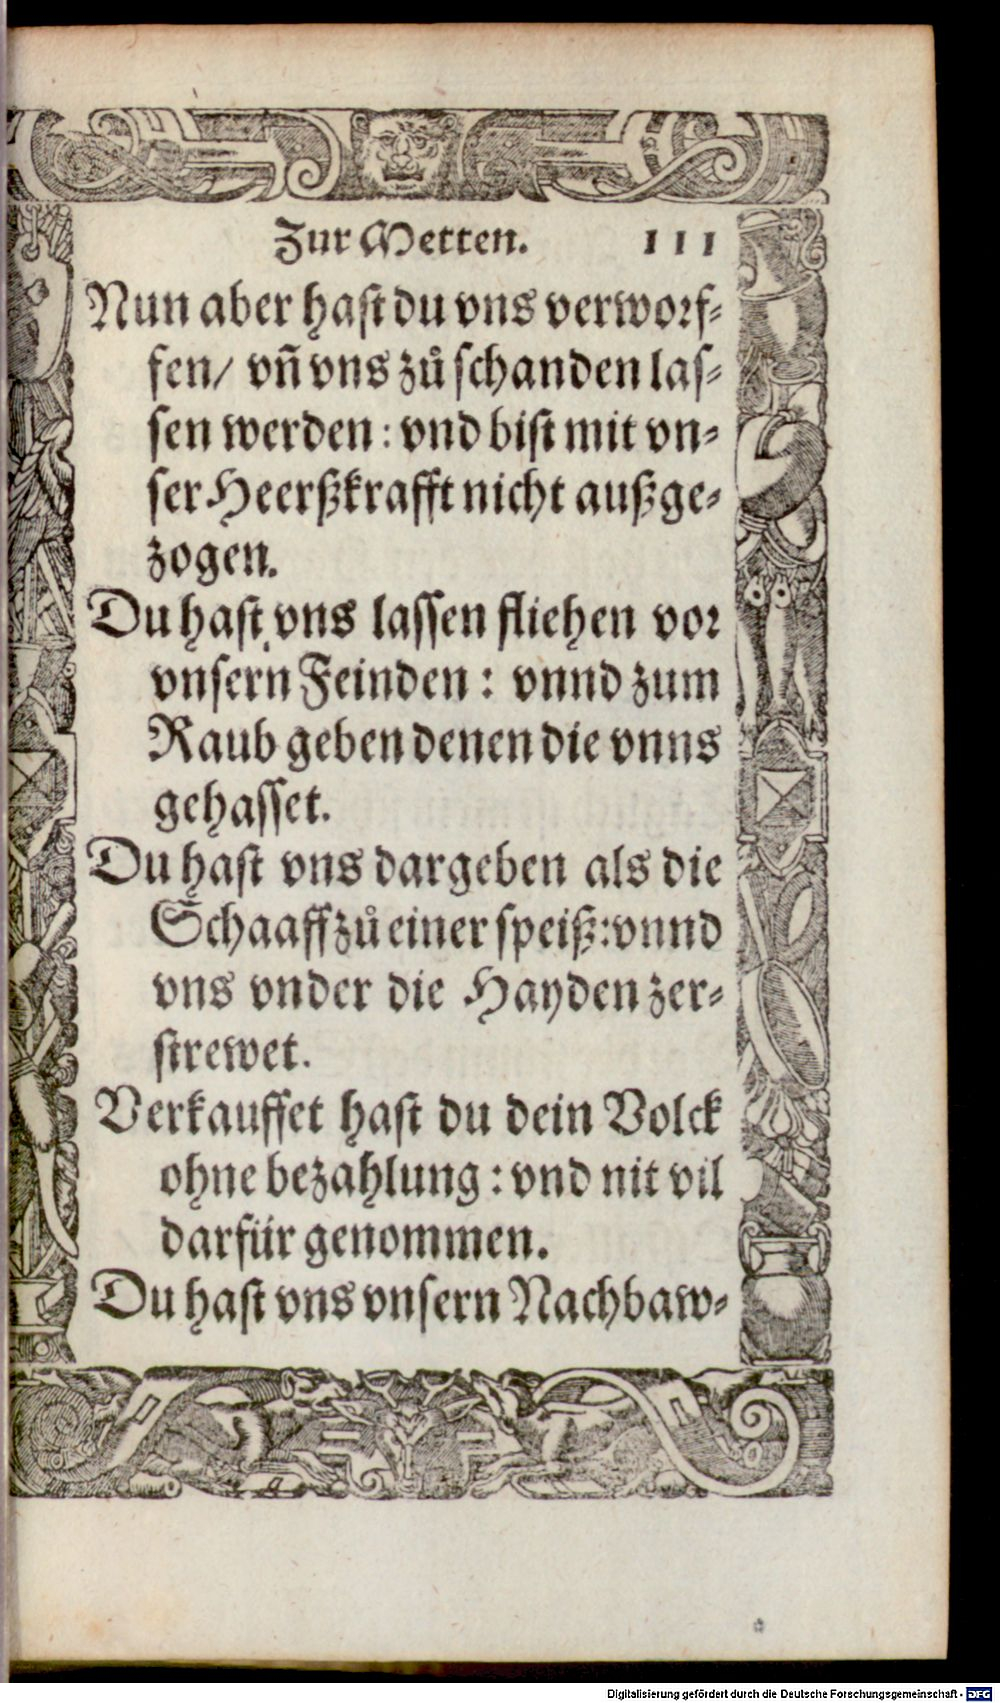 Zur Metten. 111
Nun aber hast du vns verworf-
fen/ vñ vns zů schanden las-
sen werden: vnd bist mit vn-
ser Heerßkrafft nicht außge-
zogen.
Du hast vns lassen fliehen vor
vnsern Feinden: vnnd zum
Raub geben denen die vnns
gehasset.
Du hast vns dargeben als die
Schaaff zů einer speiß: vnnd
vns vnder die Hayden zer-
strewet.
Verkauffet hast du dein Volck
ohne bezahlung: vnd nit vil
darfür genommen.
Du hast vns vnsern Nachbaw-
Digitalisierung gefördert durch die Deutsche Forschungsgemeinschaft - DFG